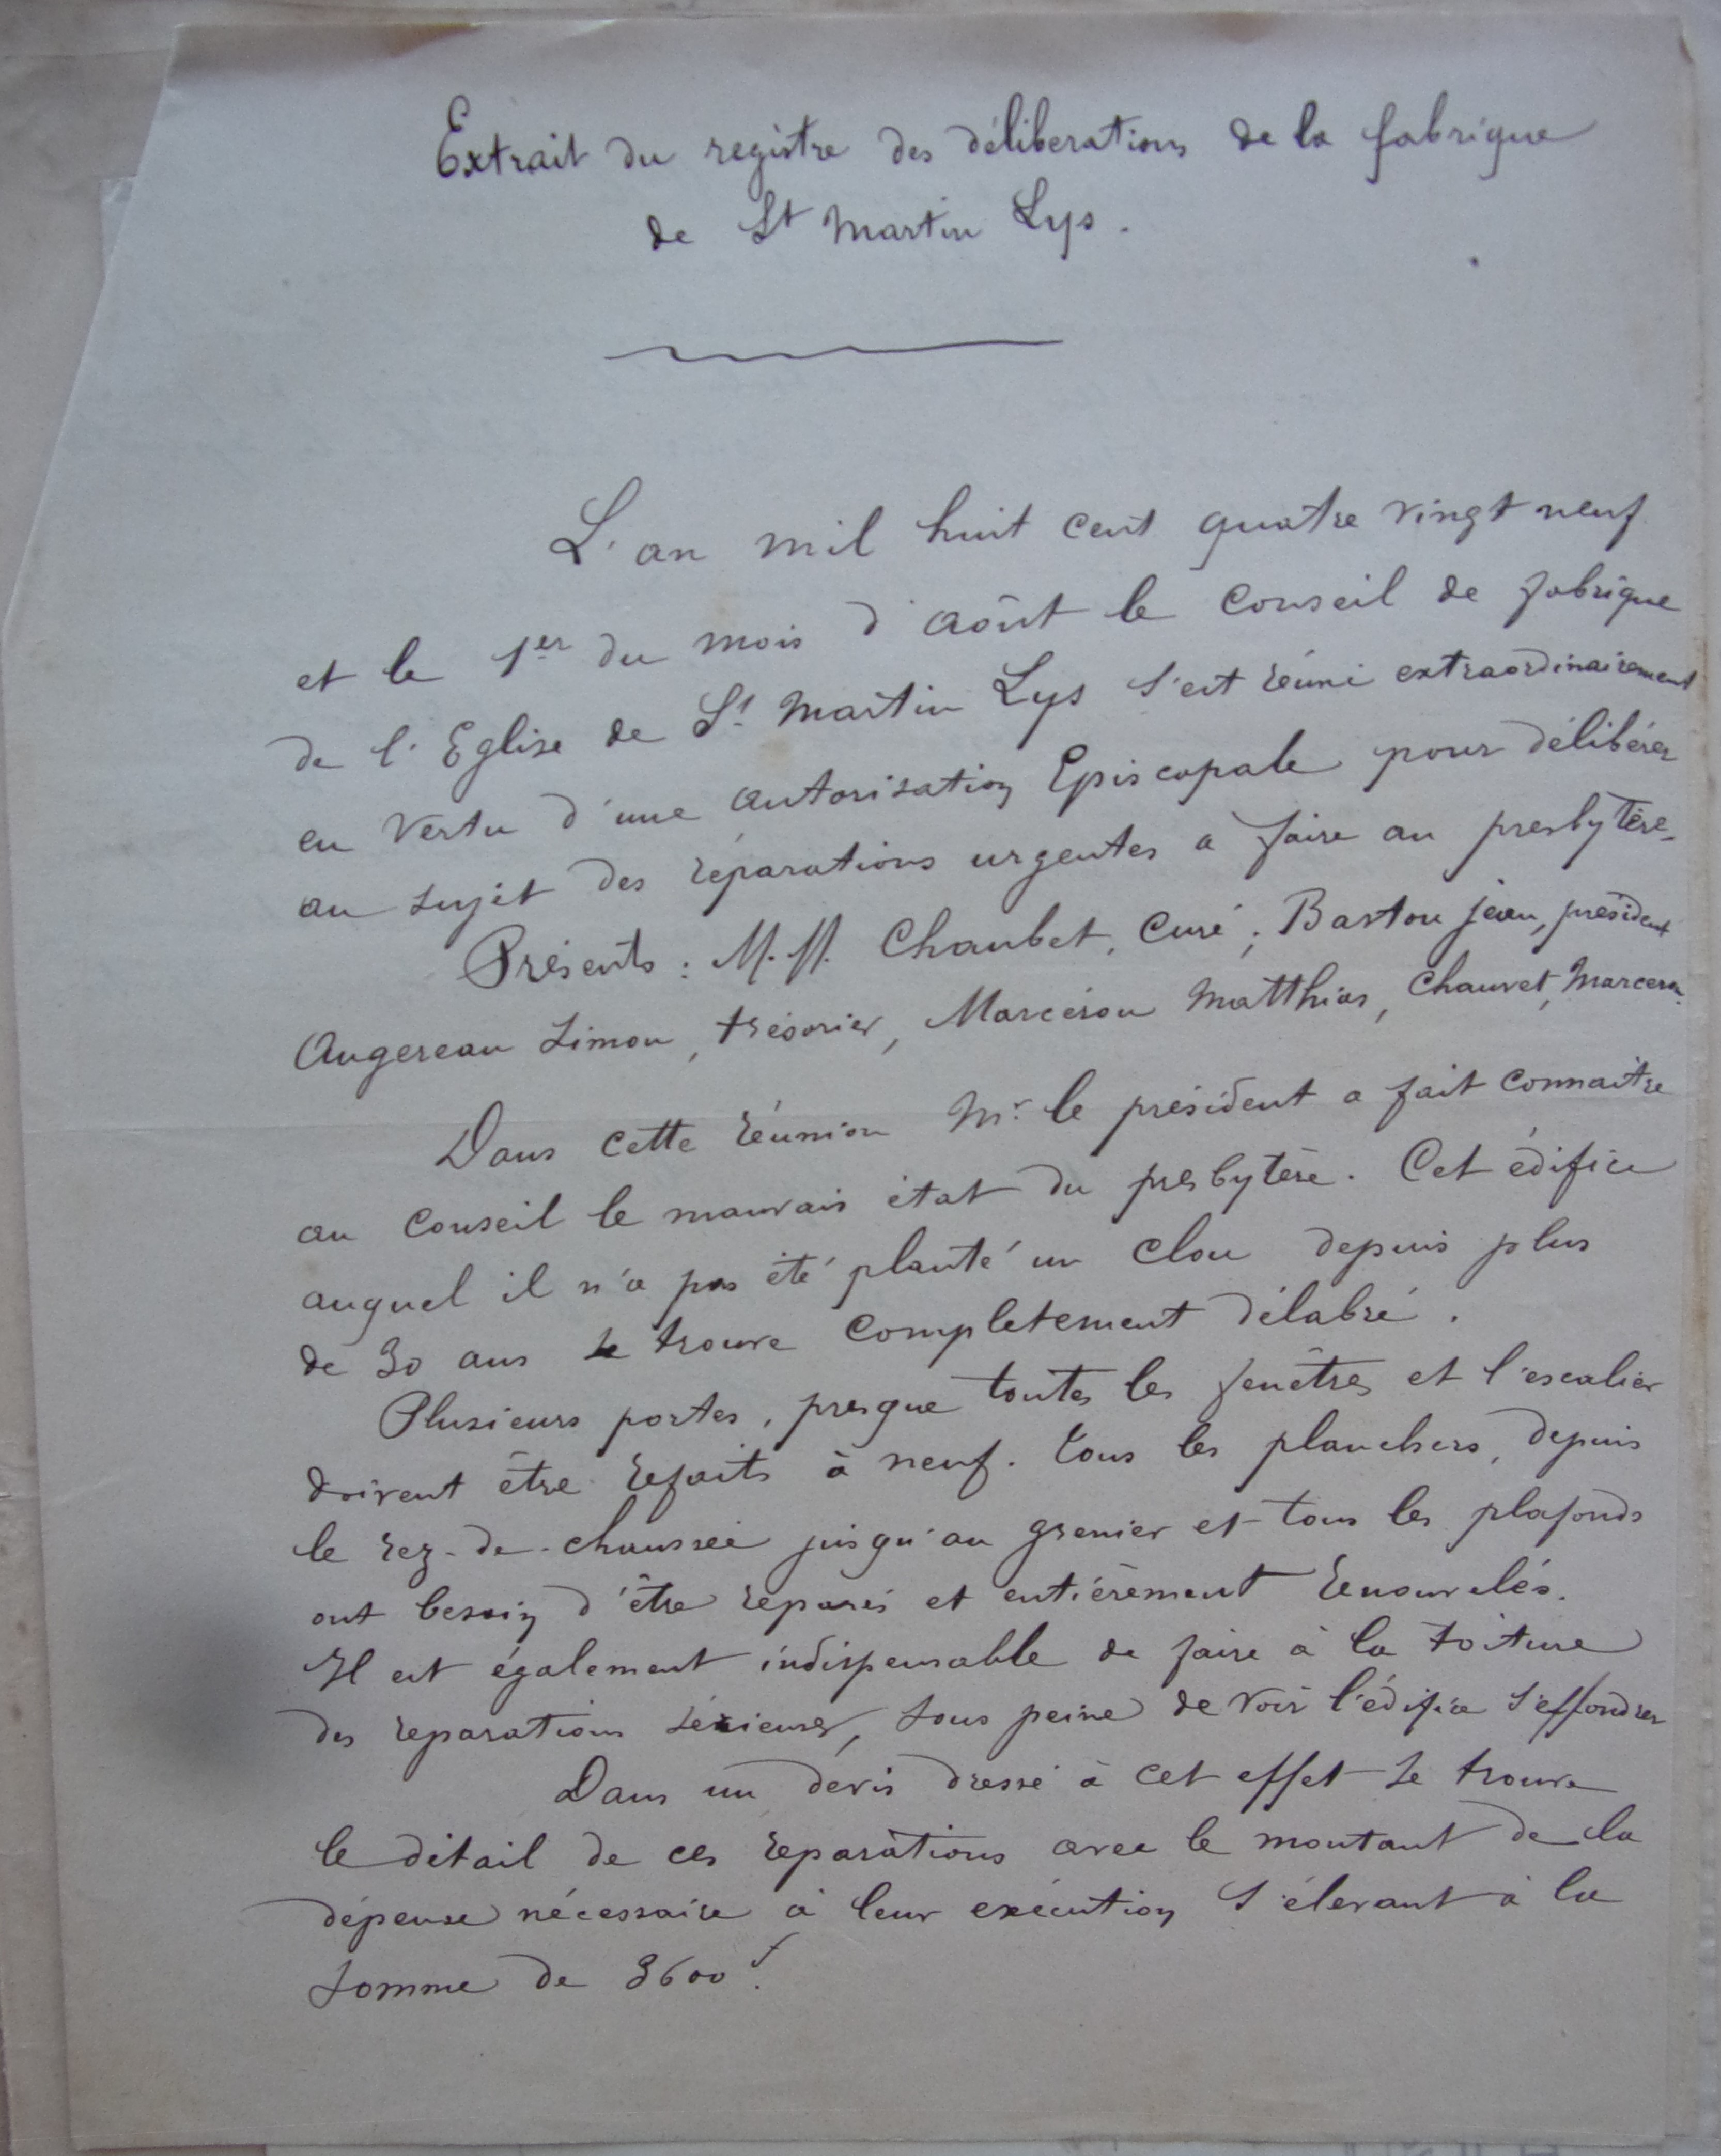 Extrait du registre des déliberations de la fabrique
de St Martin Lys.
L'an mil huit cent quatre vingt neuf
et le 1er du mois d'Août le Conseil de fabrique
de l'Eglise de St Martin Lys s'est réuni extraordinairement
en vertu d'une autorisation Episcopale pour délibérer
au sujet des réparations urgentes a faire au presbytère.
Présents : M.M. Chaubet, Curé ; Bastou jean, président
Augereau Simon, trésorier, Marcérou Matthias, Chauvet, Marcerou.
Dans cette réunion Mr. le président a fait connaitre
au Conseil le mauvais état du presbytère. Cet édifice
auquel il n'a pas été planté un clou depuis plus
de 30 ans se trouve completement délabré.
Plusieurs portes, presque toutes les fenêtres et l'escalier
doivent être refaits à neuf. tous les planchers, depuis
le rez-de-chaussée jusqu'au grenier et tous les plafonds
ont besoin d'être reparés et entièrement renouvelés.
Il est également indispensable de faire à la toiture
des reparations sérieuses, sous peine de voir l'édifice s'effondrer
Dans un devis dressé à cet effet se trouve
le détail de ces reparations avec le montant de la
dépense nécessaire à leur exécution s'élevant à la
somme de 3600f.